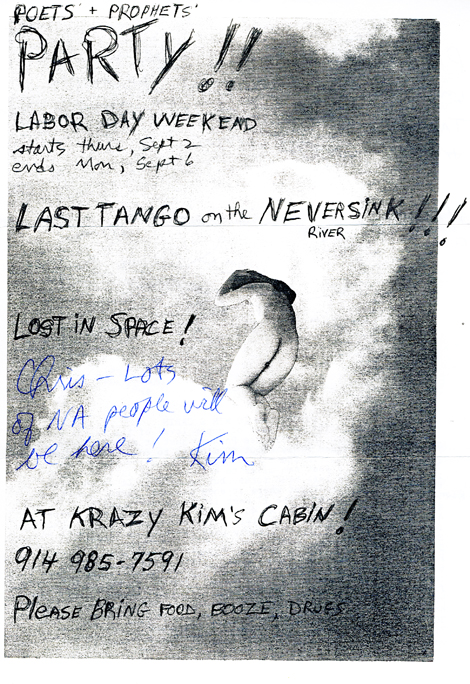 POETS' + PROPHETS'
PARTY!!
LABOR DAY WEEKEND
starts thurs, Sept 2
ends Mon, Sept 6
LAST TANGO on the NEVERSINK!!!
RIVER
LOST IN SPACE!
Chris - Lots
of NA people will
be here! Kim
AT KRAZY KIM'S CABIN!
914 985-7591
PLEASE BRING FOOD, BOOZE, DRUGS